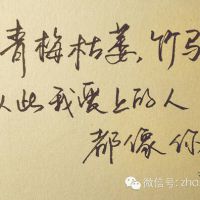 青梅枯萎,竹马
从此我爱上的人
都像你
微信号: zha